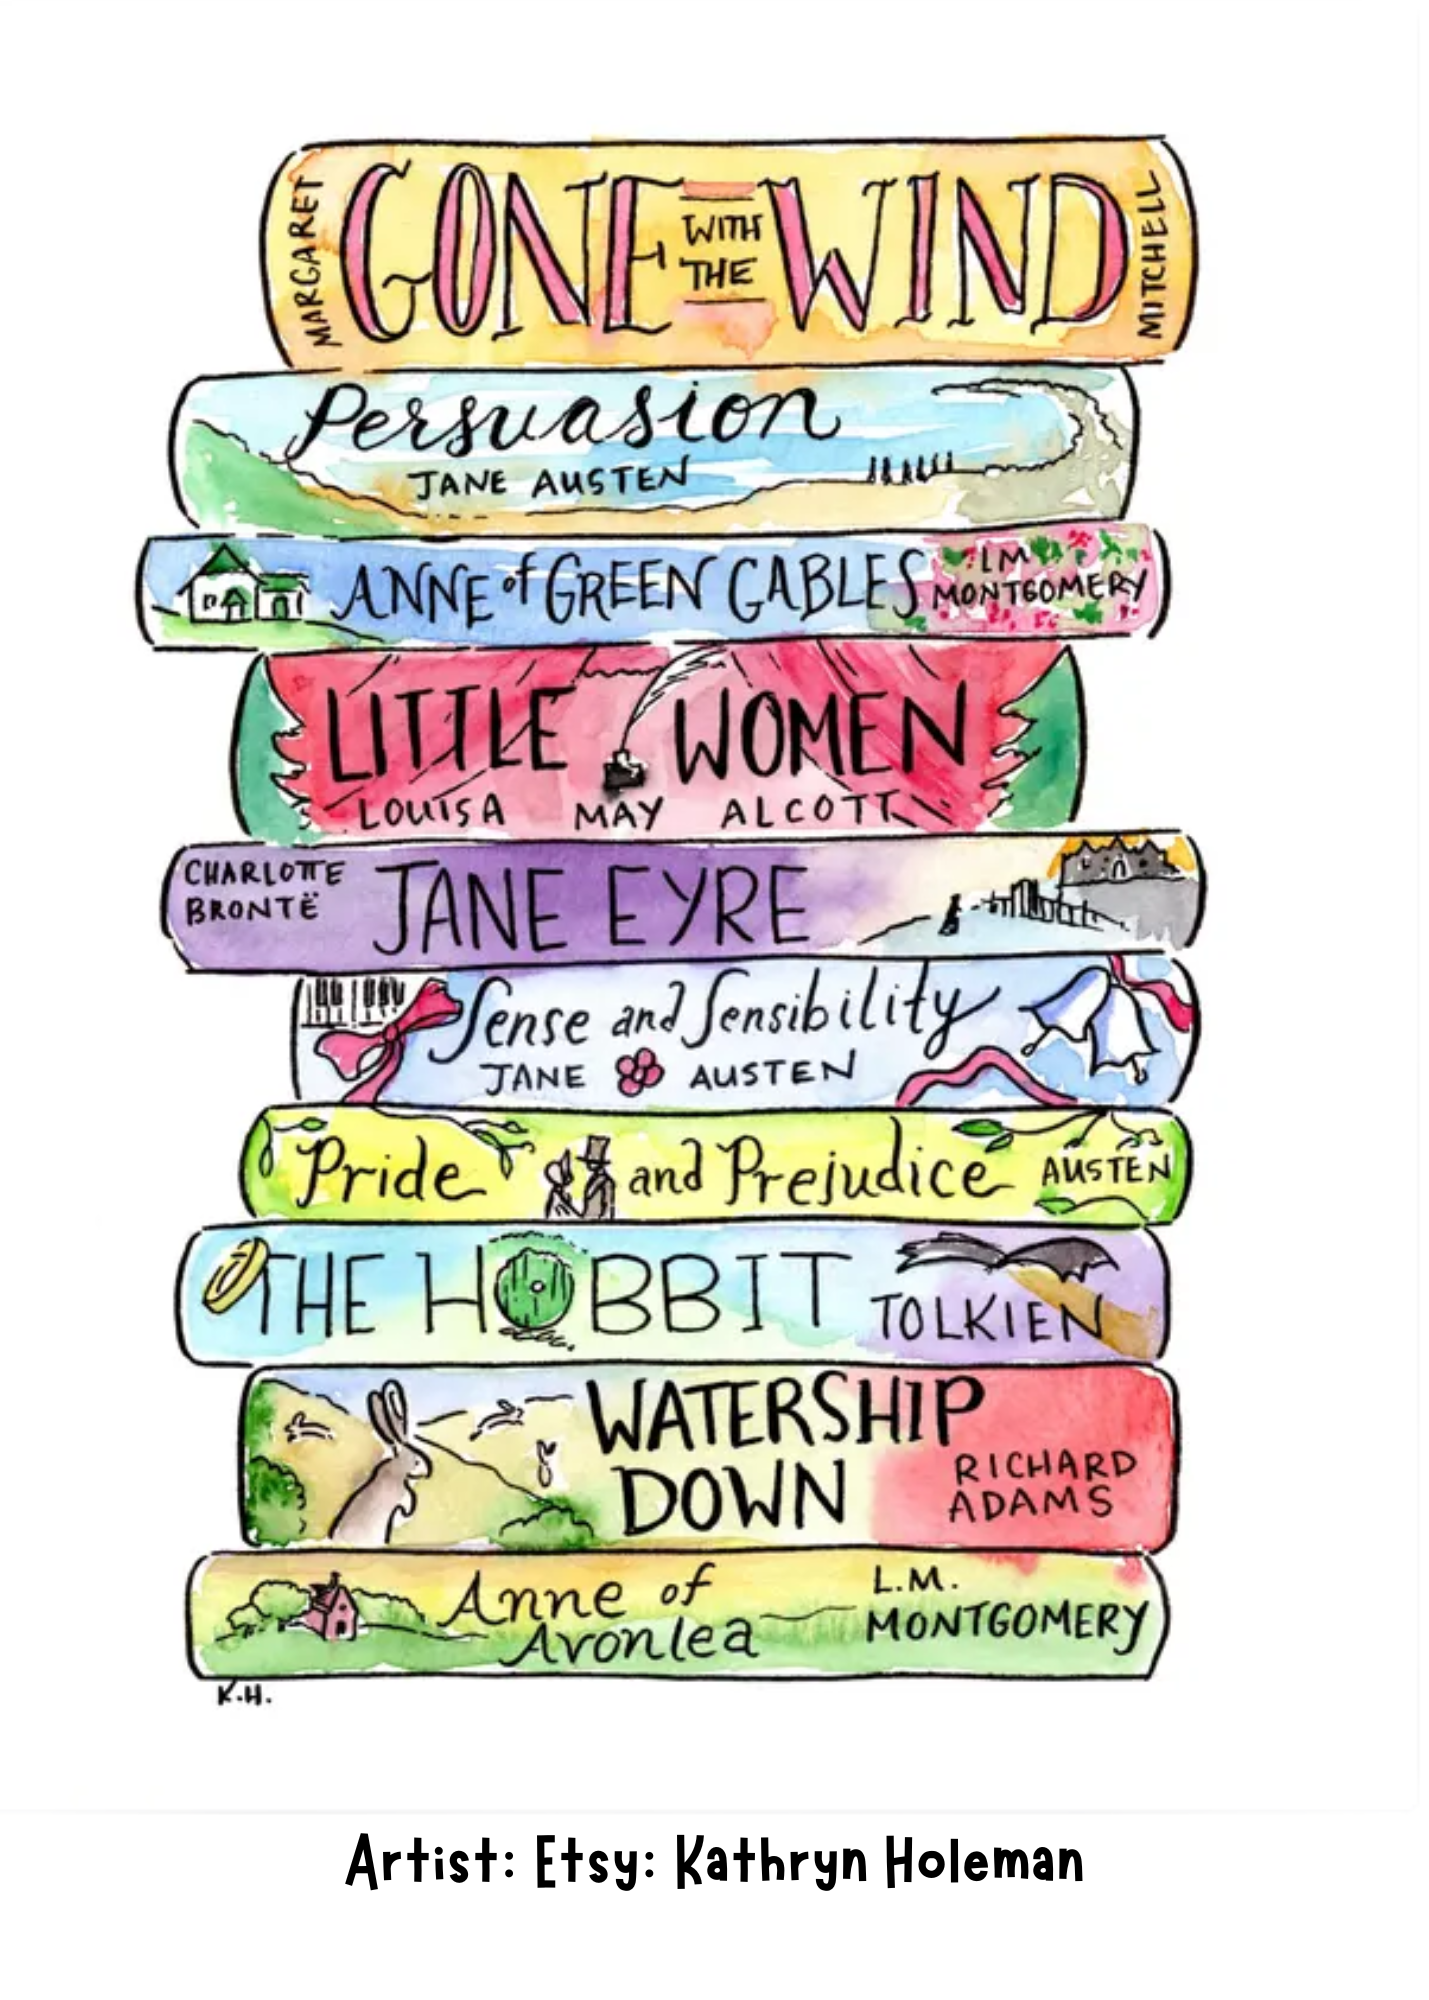 MARGARET
GONE WITH THE WIND
MITCHELL
Persuasion
JANE AUSTEN
ANNE of GREEN GABLES
LM
MONTGOMERY
LITTLE WOMEN
LOUISA MAY ALCOTT
CHARLOTTE
BRONTË
JANE EYRE
Sense and Sensibility
JANE AUSTEN
Pride and Prejudice
AUSTEN
THE HOBBIT
TOLKIEN
WATERSHIP
DOWN
RICHARD
ADAMS
Anne of
Avonlea
L.M.
MONTGOMERY
K.H.
Artist: Etsy: Kathryn Holeman